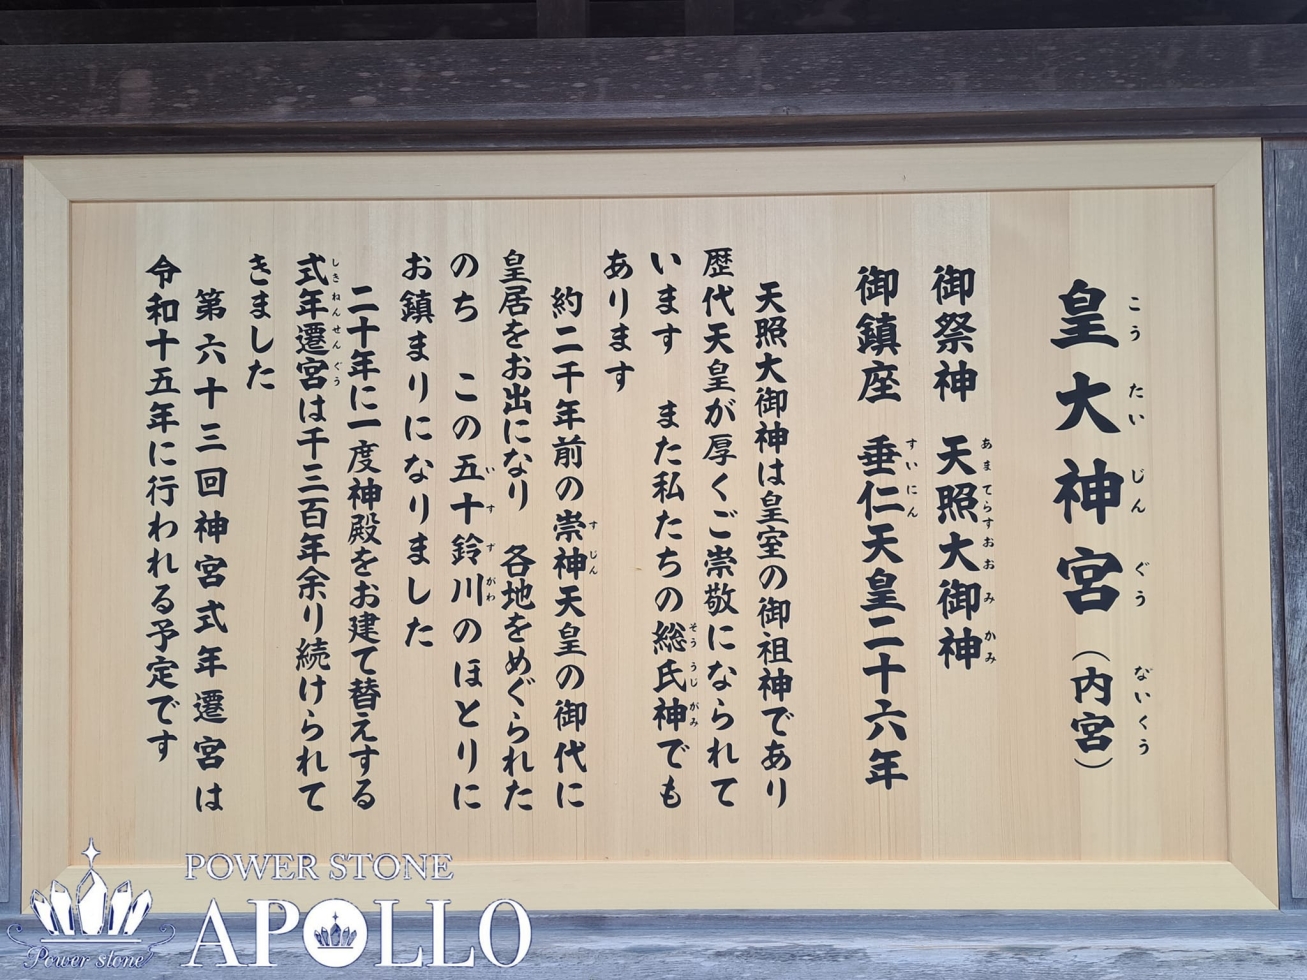 皇大神宮（内宮）
こうたいじんぐう　ないくう
御祭神　天照大御神
あまてらすおおみかみ
御鎮座　垂仁天皇二十六年
すいにん
天照大御神は皇室の御祖神であり
歴代天皇が厚くご崇敬になられて
います　また私たちの総氏神でも
そううじがみ
あります
約二千年前の崇神天皇の御代に
すじん
皇居をお出になり　各地をめぐられた
のち　この五十鈴川のほとりに
いすずがわ
お鎮まりになりました
二十年に一度神殿をお建て替えする
式年遷宮は千三百年余り続けられて
しきねんせんぐう
きました
第六十三回神宮式年遷宮は
令和十五年に行われる予定です
POWER STONE
APOLLO
Power stone